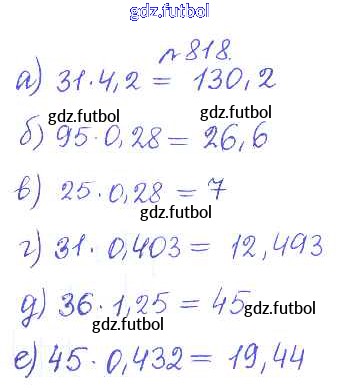 gdz.futbol
№818.
а) 31·4,2 = 130,2
gdz.futbol gdz.futbol
б) 95·0,28 = 26,6
в) 25·0,28 = 7
gdz.futbol
г) 31·0,403 = 12,493
д) 36·1,25 = 45 gdz.futbol
gdz.futbol
е) 45·0,432 = 19,44